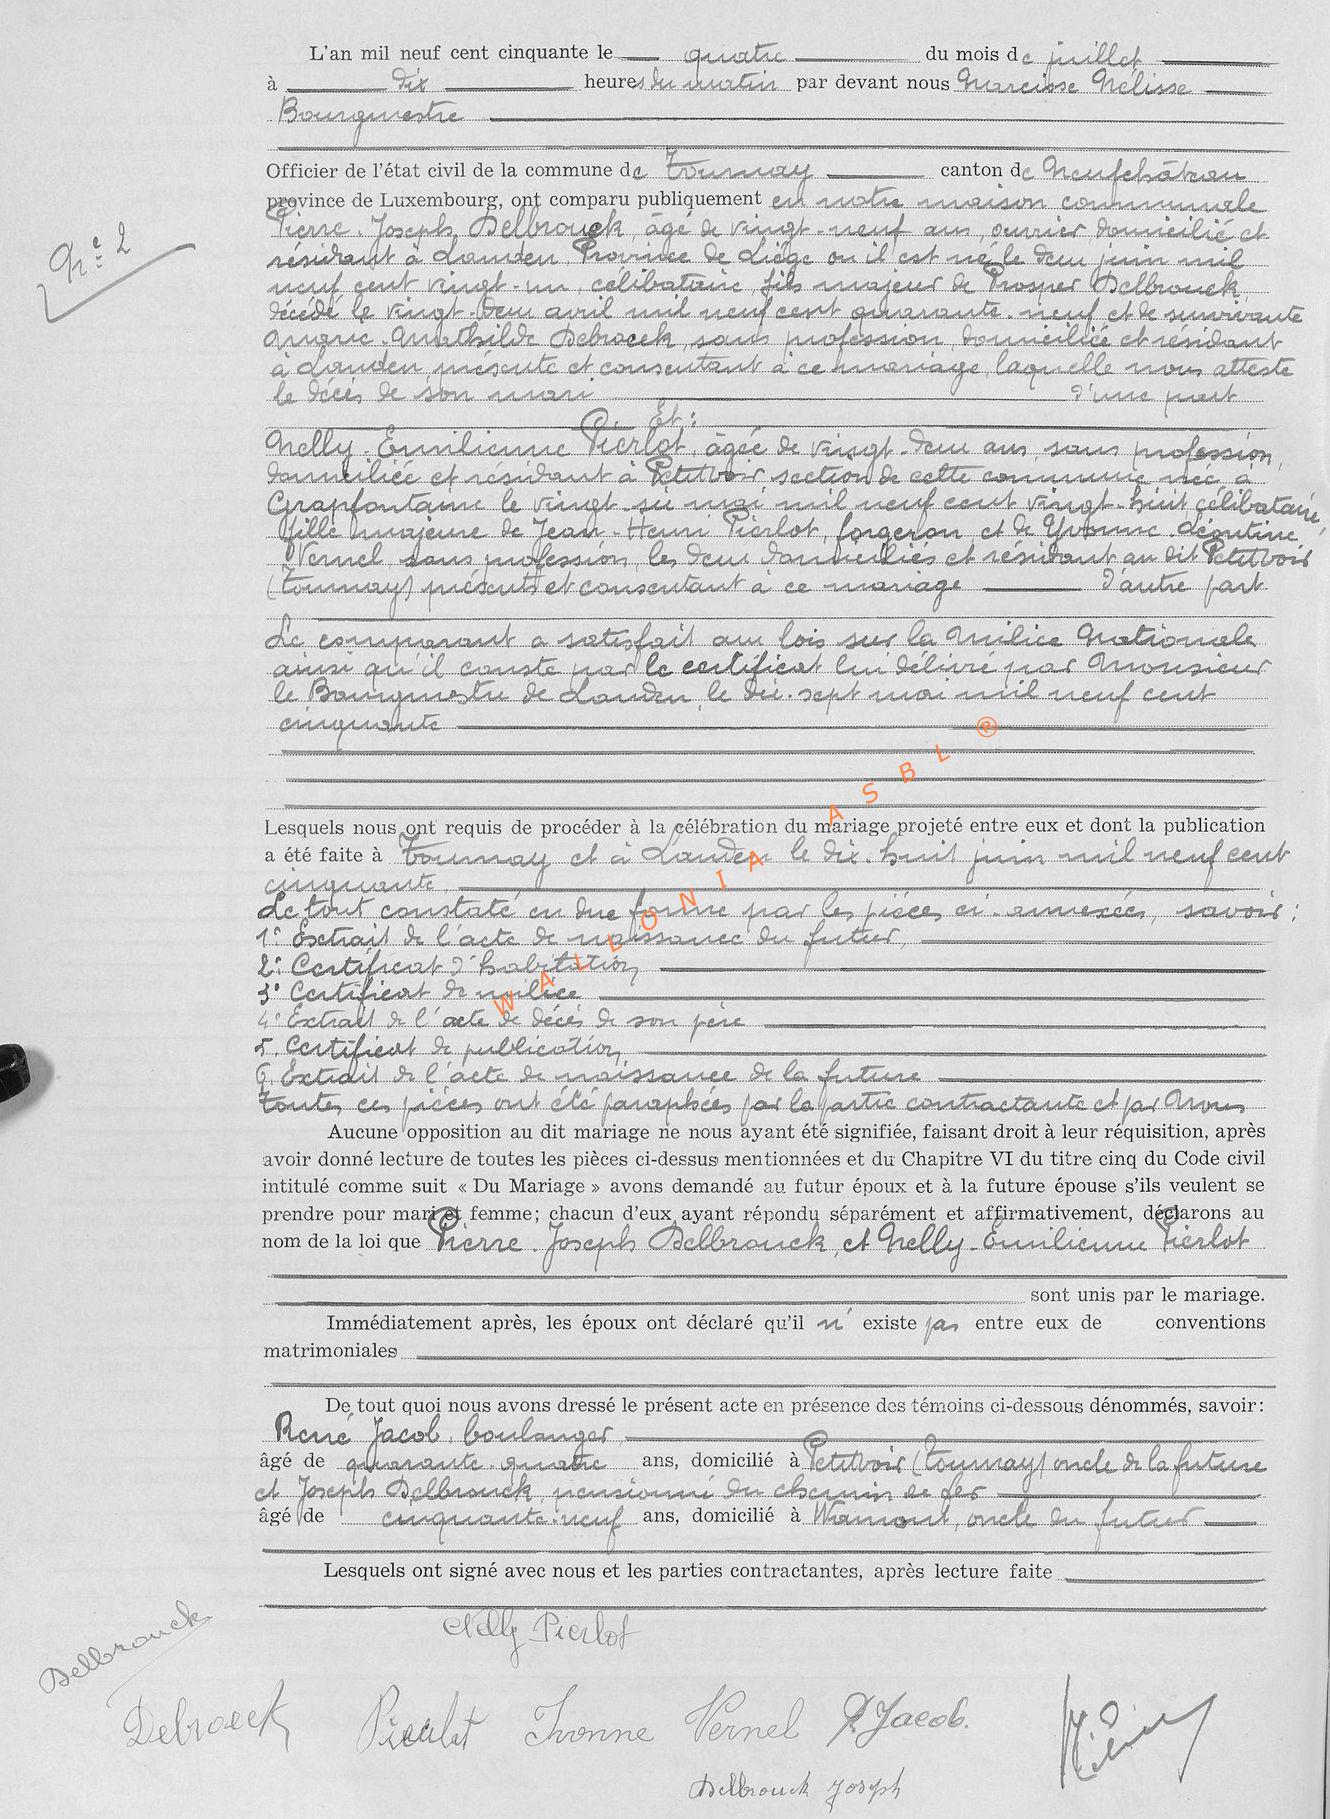 L'an mil neuf cent cinquante le quatre du mois de juillet
à dix heures du matin par devant nous Narcisse Nélisse
Bourgmestre
Officier de l'état civil de la commune de Tournay canton de Neufchâteau
province de Luxembourg, ont comparu publiquement en notre maison communale
N° 2
Pierre-Joseph Delbrouck, âgé de vingt-neuf ans, ouvrier, domicilié et
résidant à Landen, Province de Liège ou il est né le deux juin mil
neuf cent vingt-un, célibataire, fils majeur de Prosper Delbrouck,
décédé le vingt-deux avril mil neuf cent quarante-neuf et de survivante
Marie-Mathilde Debroeck, sans profession, domiciliée et résidant
à Landen, présente et consentant à ce mariage, laquelle nous atteste
le décès de son mari d'une part
Et:
Nelly-Emilienne Pierlot, âgée de vingt-deux ans, sans profession,
domiciliée et résidant à Petitvoir, section de cette commune, née à
Grapfontaine le vingt-six mai mil neuf cent vingt-huit, célibataire,
fille majeure de Jean-Henri Pierlot, forgeron, et de Yvonne-Léontine
Vernel sans profession, les deux domiciliés et résidant au dit Petitvoir
(Tournay) présents et consentant à ce mariage d'autre part
Le comparant a satisfait aux lois sur la Milice Nationale
ainsi qu'il conste par le certificat lui délivré par Monsieur
le Bourgmestre de Landen, le dix-sept mai mil neuf cent
cinquante
Lesquels nous ont requis de procéder à la célébration du mariage projeté entre eux et dont la publication
a été faite à Tournay et à Landen le dix-huit juin mil neuf cent
cinquante.
Le tout constaté en due forme par les pièces ci-annexées, savoir:
1° Extrait de l'acte de naissance du futur,
2° Certificat d'habitation,
3° Certificat de milice
4° Extrait de l'acte de décès de son père
5. Certificat de publication,
6. Extrait de l'acte de naissance de la future
Toutes ces pièces ont été paraphées par la partie contractante et par Nous
Aucune opposition au dit mariage ne nous ayant été signifiée, faisant droit à leur réquisition, après
avoir donné lecture de toutes les pièces ci-dessus mentionnées et du Chapitre VI du titre cinq du Code civil
intitulé comme suit « Du Mariage » avons demandé au futur époux et à la future épouse s'ils veulent se
prendre pour mari et femme; chacun d'eux ayant répondu séparément et affirmativement, déclarons au
nom de la loi que Pierre-Joseph Delbrouck, et Nelly-Emilienne Pierlot
sont unis par le mariage.
Immédiatement après, les époux ont déclaré qu'il n' existe pas entre eux de conventions
matrimoniales
De tout quoi nous avons dressé le présent acte en présence des témoins ci-dessous dénommés, savoir:
René Jacob, boulanger,
âgé de quarante-quatre ans, domicilié à Petitvoir (Tournay) oncle de la future
et Joseph Delbrouck, pensionné du chemin de fer
âgé de cinquante-neuf ans, domicilié à Wamont, oncle du futur
Lesquels ont signé avec nous et les parties contractantes, après lecture faite
Nelly Pierlot
Delbrouck
Debroeck Pierlot Yvonne Vernel R. Jacob.
Delbrouck Joseph
WALLONIA ASBL ®